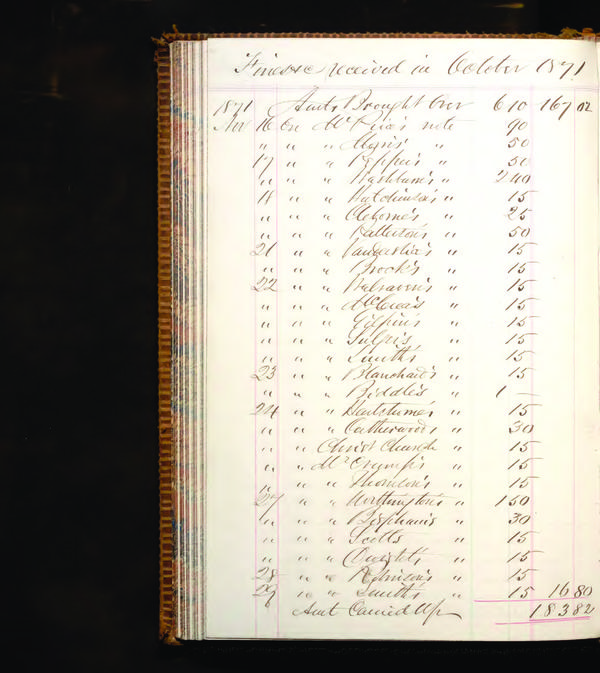 Fines &c received in October 1871
1871 Amt Brought Over 6 10 167 02
Nov 16 On Mc Kee's note 90
" " " " 50
17 " " Pepper's " 50
" " " Washburn's " 2 40
18 " " Hutchinson's " 15
" " " Cleborne's " 25
" " " Patterson's " 50
21 " " Vanderslice's " 15
" " " Brock's " 15
22 " " Walraven's " 15
" " " " 15
" " " Gilpin's " 15
" " " " 15
" " " Smith's " 15
23 " " Blanchard's " 15
" " " Biddle's " 1 —
24 " " " 15
" " " Catherwood's " 30
" " " Christ Church " 15
" " Mr Crump's " 15
" " " Thornton's " 15
27 " " Worthington's " 1 50
" " " Bispham's " 30
" " " Scotts " 15
" " " Dwight's " 15
28 " " Robinson's " 15
29 " " Smith's " 15 16 80
Amt Carried Up 183 82